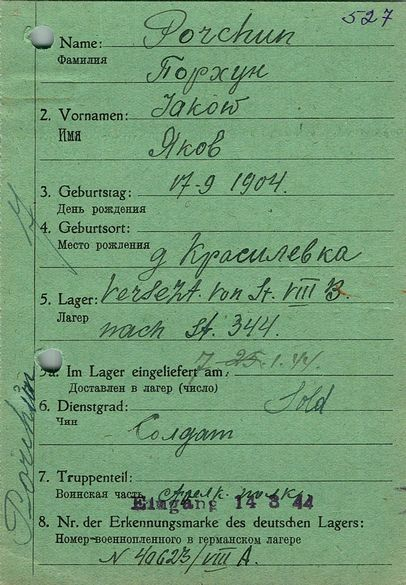 527
Name: Porchun
Фамилия
Порхун
2. Vornamen: Iakow
Имя
Яков
3. Geburtstag: 17-9 1904.
День рождения
4. Geburtsort:
Место рождения
д Красилевка
5. Lager: Versetzt. von St. VIII B.
Лагер
nach St. 344.
5a. Im Lager eingeliefert am: 25.1.44.
Доставлен в лагер (число)
6. Dienstgrad: Sold
Чин
Солдат
7. Truppenteil:
Воинская часть стрелк. полк.
Eingang 14 3 44
8. Nr. der Erkennungsmarke des deutschen Lagers:
Номер-военнопленного в германском лагере
N 49623/VIII A.
Porchun